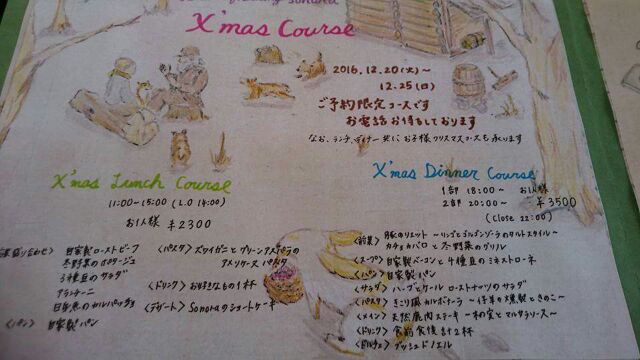 X'mas Course
2016.12.20(火)〜
12.25(日)
ご予約限定コースです
お電話お待ちしております
なお、ランチ、ディナー共に、お子様クリスマスコースも承ります
X'mas Lunch Course
11:00〜15:00 (L.O 14:00)
お1人様 ¥2300
自家製ローストビーフ
冬野菜のポタージュ
3種豆のサラダ
アランチーニ
白身魚のカルパッチョ
<パン> 自家製パン
<パスタ> ズワイガニとグリーンアスパラの
アメリケーヌパスタ
<ドリンク> お好きなもの1杯
<デザート> Sonoraのショートケーキ
X'mas Dinner Course
1部 18:00〜 お1人様
2部 20:00〜 ¥3500
(Close 22:00)
<前菜> 豚のリエット 〜リンゴとゴルゴンゾーラのタルトスタイル〜
カチョカバロと冬野菜のグリル
<スープ> 自家製ベーコンと4種豆のミネストローネ
<パン> 自家製パン
<サラダ> ハーブとケール ローストナッツのサラダ
<パスタ> きこり風カルボナーラ 〜仔羊の燻製ときのこ〜
<メイン> 天然鹿肉ステーキ 〜木の実とマルサラソース〜
<ドリンク> 食前食後計2杯
<ドルチェ> ブッシュドノエル